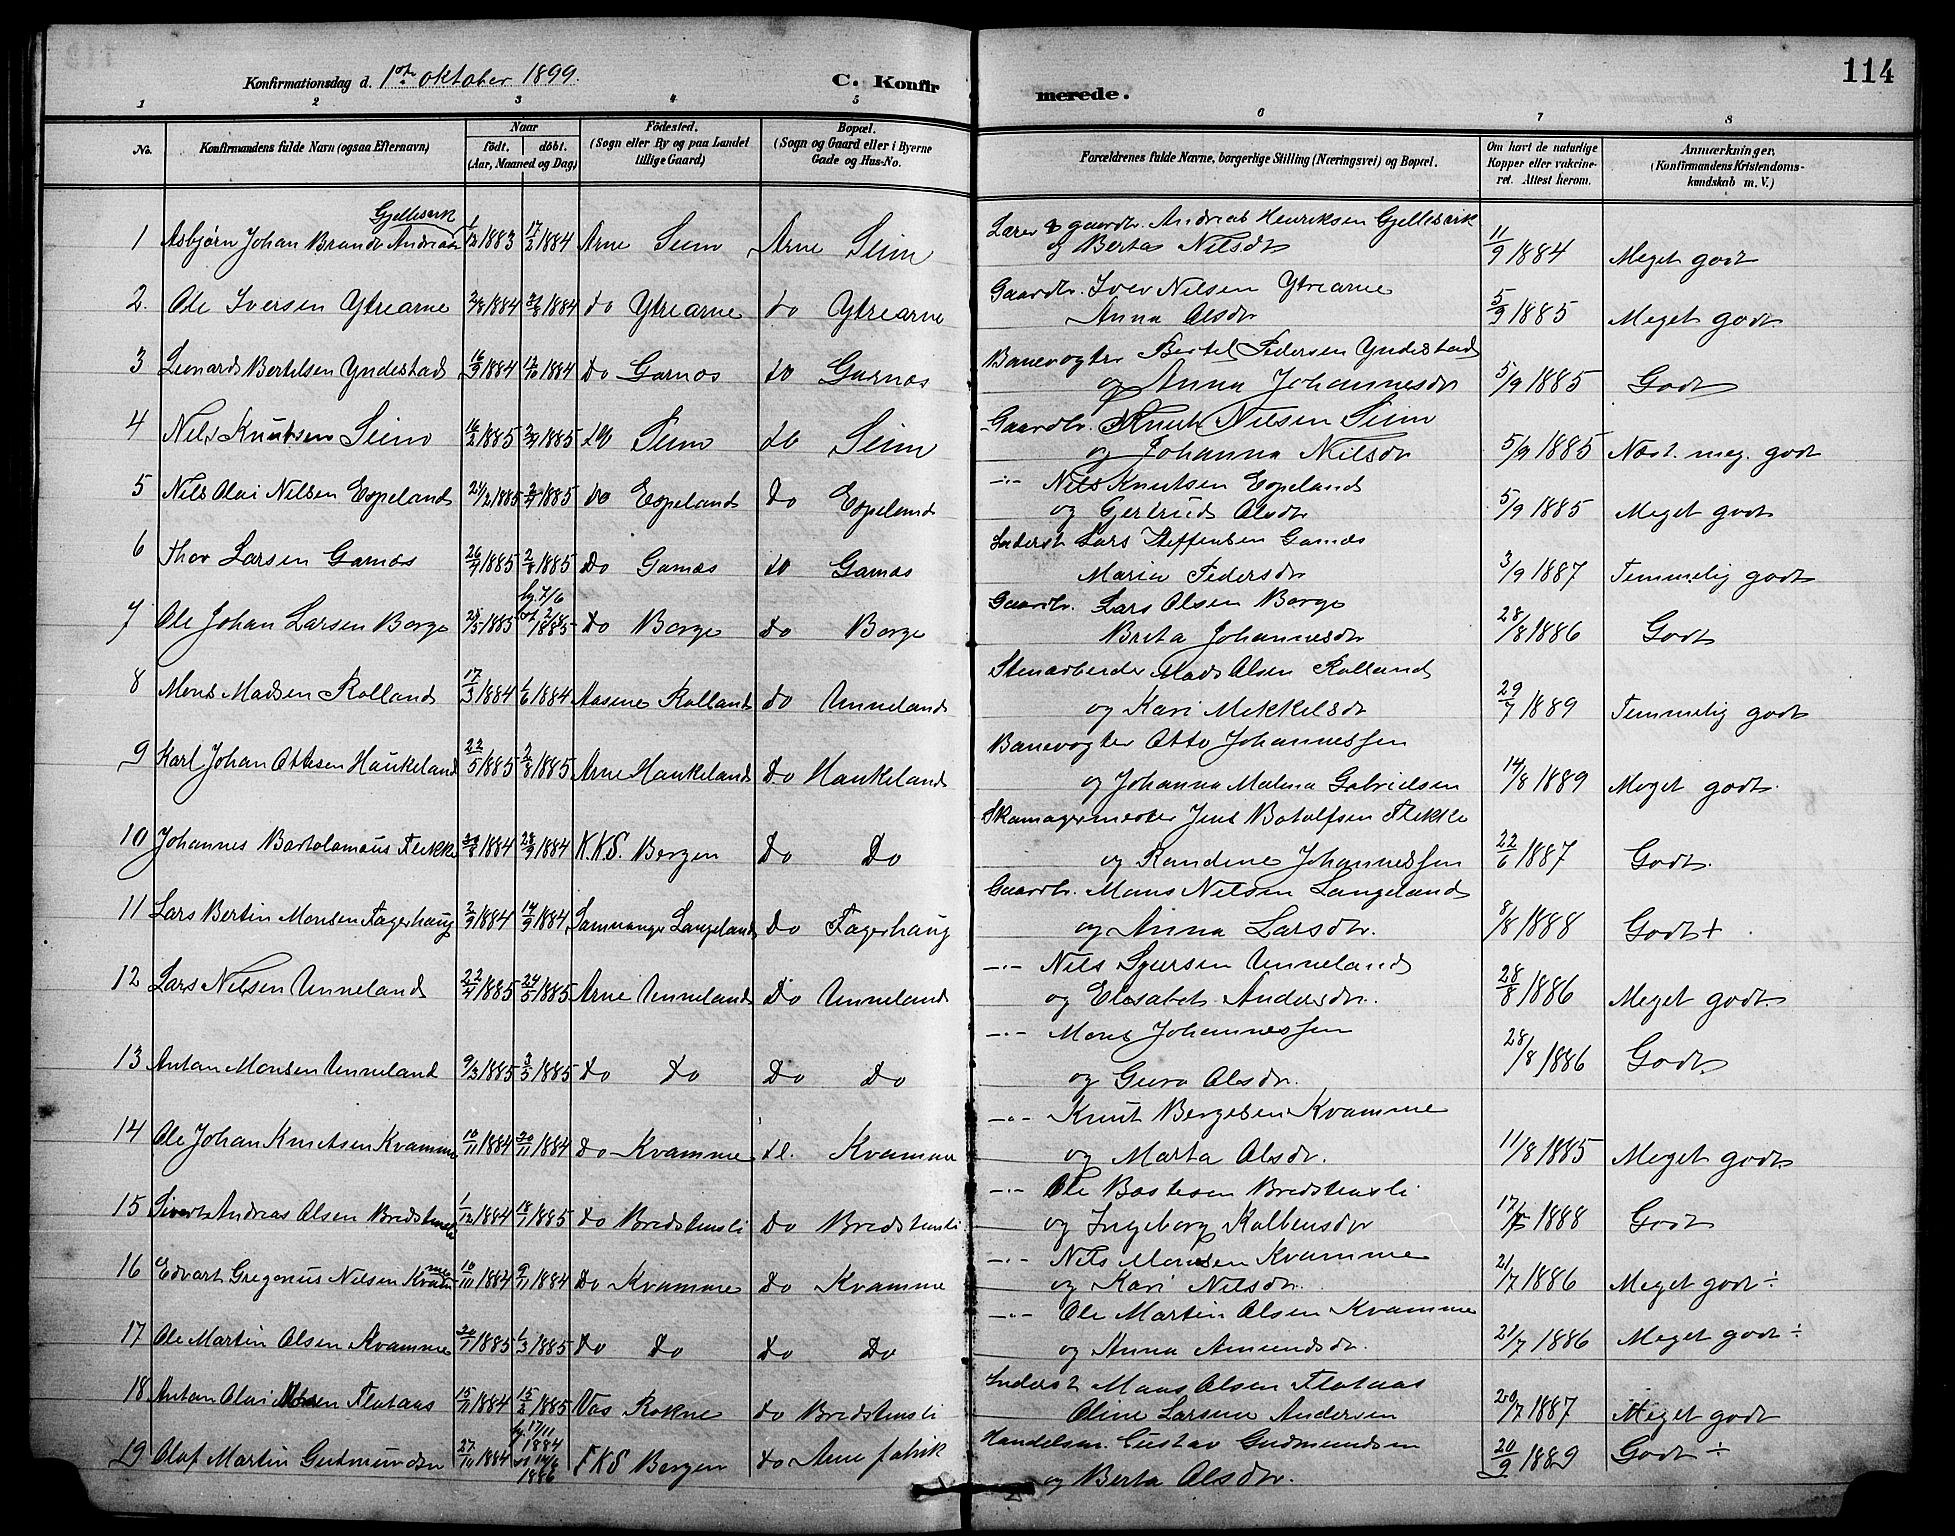 114
Konfirmationsdag d. 1ste oktober 1899. C. Konfirmerede.
1 2 3 4 5 6 7 8
No. Konfirmandens fulde Navn (ogsaa Efternavn) Naar født. døbt. (Aar, Maaned og Dag) Fødested. (Sogn eller By og paa Landet tillige Gaard) Bopæl. (Sogn og Gaard eller i Byerne Gade og Hus-No. Forældrenes fulde Navne, borgerlige Stilling (Næringsvei) og Bopæl. Om havt de naturlige Kopper eller vakcineret. Attest herom. Anmærkninger, (Konfirmandens Kristendomskundskab m. V.)
1 Asbjørn Johan Brandt Andreas Gjellesvik 1883 17/2 1884 Arne Seim Arne Seim Lærer & gaardbr. Andreas Henriksen Gjellesvik og Berta Nilsdr 11/9 1884 Meget godt
2. Ole Iversen Ytrearne 1884 1884 do Ytrearne do Ytrearne Gaardbr. Iver Nilsen Ytrearne Anna Olsdr 5/9 1885 Meget godt
3 Leonard Bertelsen Yndestad 16/9 1884 12/10 1884 Do Garnæs do Garnæs Banevogter Bertel Pedersen Yndestad og Anna Johannesdr 5/9 1885 Godt
4 Nels Knutsen Seim 16/2 1885 1885 do Seim do Seim Gaardbr. Knut Nilsen Seim og Johanna Nilsdr 5/9 1885 Næst. meg. godt
5 Nils Olai Nilsen Espeland 24/2 1885 1885 do Espeland Do Espeland -"- Nils Knutsen Espeland og Gjertrud Olsdr 5/9 1885 Meget godt
6 Thor Larsen Garnæs 26/4 1885 2/8 1885 Do Garnæs do Garnæs Inderst Lars Steffensen Garnæs Maria Pedersdr 3/9 1887 Temmelig godt
7 Ole Johan Larsen Borge 25/5 1885 hj. 7/6 1885 Do Borge Do Borge Gaardbr. Lars Olsen Borge Brita Johannesdr 28/8 1886 Godt
8 Mons Madsen Rolland 17/3 1884 1/6 1884 Aasene Rolland do Unneland Stenarbeider Mads Olsen Rolland og Kari Mikkelsdr 29/7 1889 Temmelig godt
9 Karl Johan Ottesen Haukeland 22/5 1885 2/8 1885 Arne Haukeland Do Haukeland Banevogter Otto Johannessen og Johanna Malena Gabrielsen 14/8 1889 Meget godt.
10 Johannes Bartolomæus Flekke 1884 28/9 1884 K.KS. Bergen Do Do Skomagermester Jens Botolfsen Flekke og Randine Johannessen 22/6 1887 Godt.
11 Lars Bertin Monsen Fagerhaug 2/9 1884 14/9 1884 Samnanger Langeland Do Fagerhaug Gaardbr. Mons Nilsen Langeland og Anna Larsdr. 8/8 1888 Godt +
12 Lars Nilsen Unneland 22/4 1885 24/5 1885 Arne Unneland Do Unneland -"- Nils Sjursen Unneland og Elisabet Andersdr. 28/8 1886 Meget godt.
13 Antan Monsen Unneland 9/3 1885 3/5 1885 Do Do Do Do -"- Mons Johannessen og Guro Olsdr. 28/8 1886 Godt.
14 Ole Johan Knutsen Kvamme 10/11 1884 30/11 1884 Do Kvamme do. Kvamme -"- Knut Bergesen Kvamme og Marta Olsdr. 11/8 1885 Meget godt
15 Sivert Andreas Olsen Bredstensli 1/12 1884 18/1 1885 Do Bredstensli Do Bredstensli -"- Ole Bastesen Bredstensli og Ingeborg Kolbensdr 1888 Godt
16 Edvart Gregorius Nilsen Kvamme 10/10 1884 9/11 1884 Do Kvamme Do Kvamme -"- Nils Monsen Kvamme og Kari Nilsdr. 21/7 1886 Meget godt ÷
17 Ole Martin Olsen Kvamme 1885 1/3 1885 Do Do Do Do -"- Ole Martin Olsen Kvamme og Anna Amundsdr. 21/7 1886 Meget godt ÷
18 Antan Olai Flataas 15/11 1884 15/2 1885 Vos Rokne Do Bredstensli Inderst Mons Olsen Flataas Oline Larsine Andersen 20/7 1887 Meget godt
19 Olaf Martin Gudmundsen 27/10 1884 hj. 17/11 1884 1886 F.KS Bergen Do Arne fabrik Handelsm. Gustav Gudmundsen og Berta Olsdr. 20/9 1889 Godt ÷